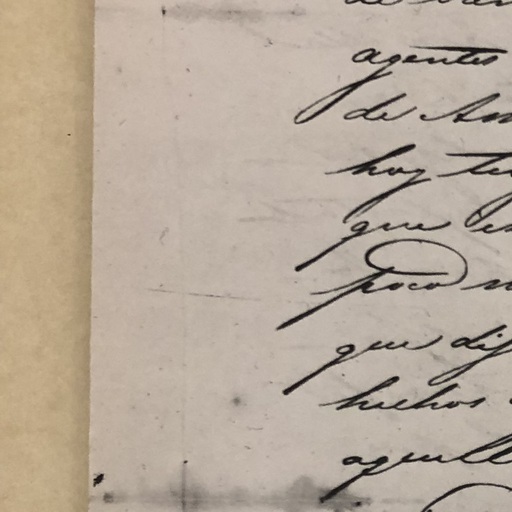 de
agentes
de Am
hoy te
que
poco
que dif
hechos
aquell